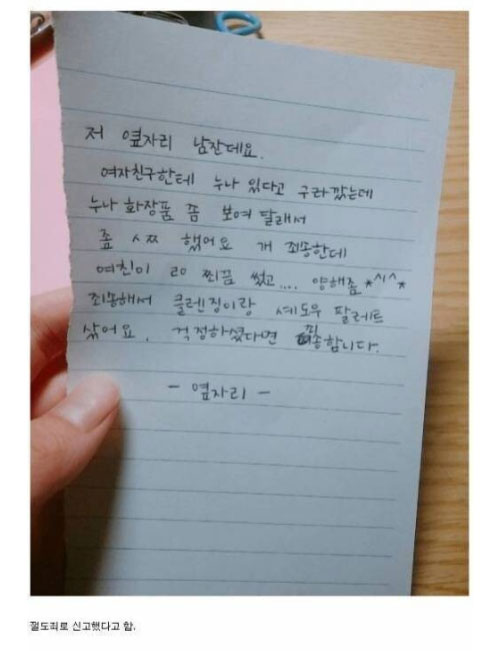 저 옆자리 남잔데요.
여자친구한테 누나 있다고 구라깠는데
누나 화장품 쫌 보여 달래서
좀 ㅅㅉ 했어요 개 죄송한데
여친이 쪼끔 썼고.... 양해좀 *^^*
죄송해서 클렌징이랑 셰도우 팔레트
샀어요. 걱정하셨다면 죄송합니다.
- 옆자리 -
절도죄로 신고했다고 함.